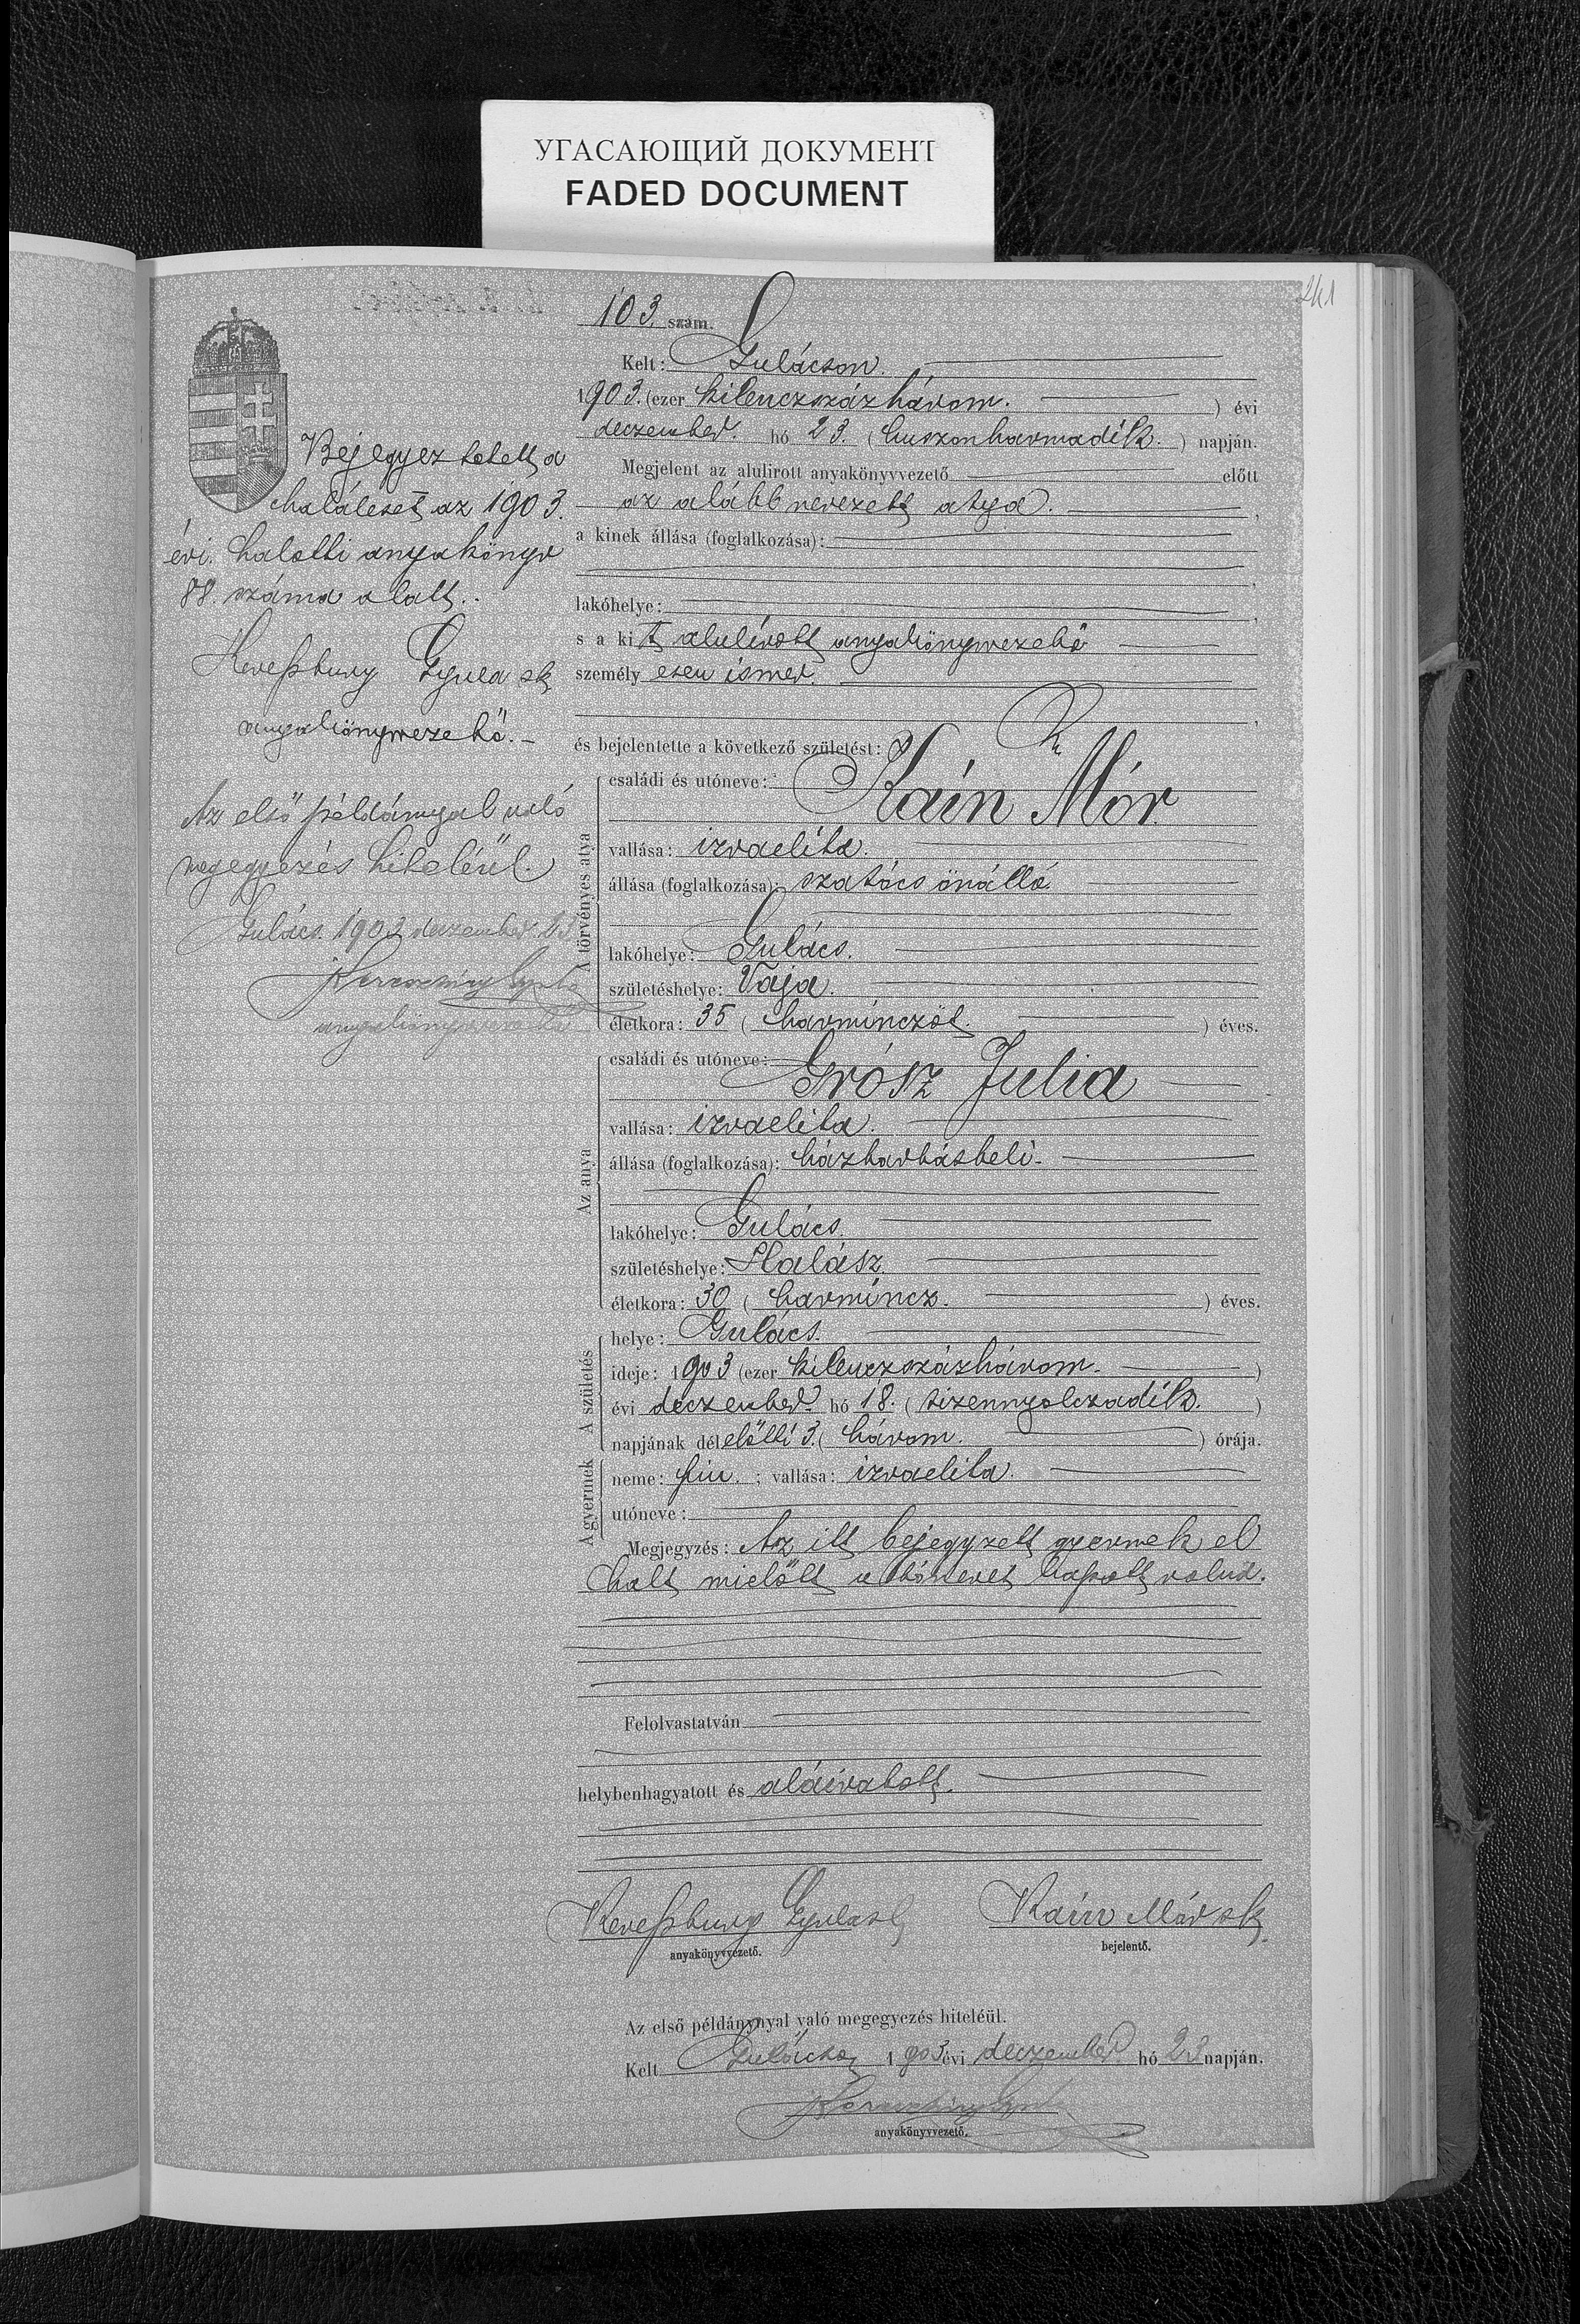 УГАСАЮЩИЙ ДОКУМЕНТ
FADED DOCUMENT
241
103. szám.
Kelt: Gulácson.
1903. (ezer kilenczszázhárom.) évi
deczember. hó 23. (huszonharmadik.) napján.
Megjelent az alulirott anyakönyvvezető előtt
az alább nevezett atya.,
a kinek állása (foglalkozása):
,
lakóhelye:,
s a kit alulírott anyakönyvvezető
személyesen ismer.
,
és bejelentette a következő születést:
A törvényes atya
családi és utóneve:
Káin Mór
vallása: izraelita.
állása (foglalkozása): szatócs önálló.
lakóhelye: Gulács.
születéshelye: Vaja.
életkora: 35 (harminczöt.) éves.
Az anya
családi és utóneve:
Grósz Julia
vallása: izraelita.
állása (foglalkozása): háztartásbeli.
lakóhelye: Gulács.
születéshelye: Halász.
életkora: 30 (harmincz.) éves.
A születés
helye: Gulács.
ideje: 1903 (ezer kilenczszázhárom.)
évi deczember. hó 18. (tizennyolczadik.)
napjának délelőtti 3. (három.) órája.
A gyermek
neme: fiu.; vallása: izraelita.
utóneve:
Megjegyzés: Az itt bejegyzett gyermek el
halt mielőtt utónevet kapott volna.
Felolvastatván
helybenhagyatott és aláiratott.
Gyula sk
anyakönyvvezető.
Kain Mór sk.
bejelentő.
Az első példánynyal való megegyezés hiteléül.
Kelt Gulácson 1903 évi deczember hó 23 napján.
anyakönyvvezető.
Bejegyeztetett a
haláleset az 1903.
évi. halotti anyakönyv
88. száma alatt.
Gyula sk
anyakönyvvezető.
Az első példánynyal való
megegyezés hiteléül.
Gulács. 1903 deczember 23.
anyakönyvvezető